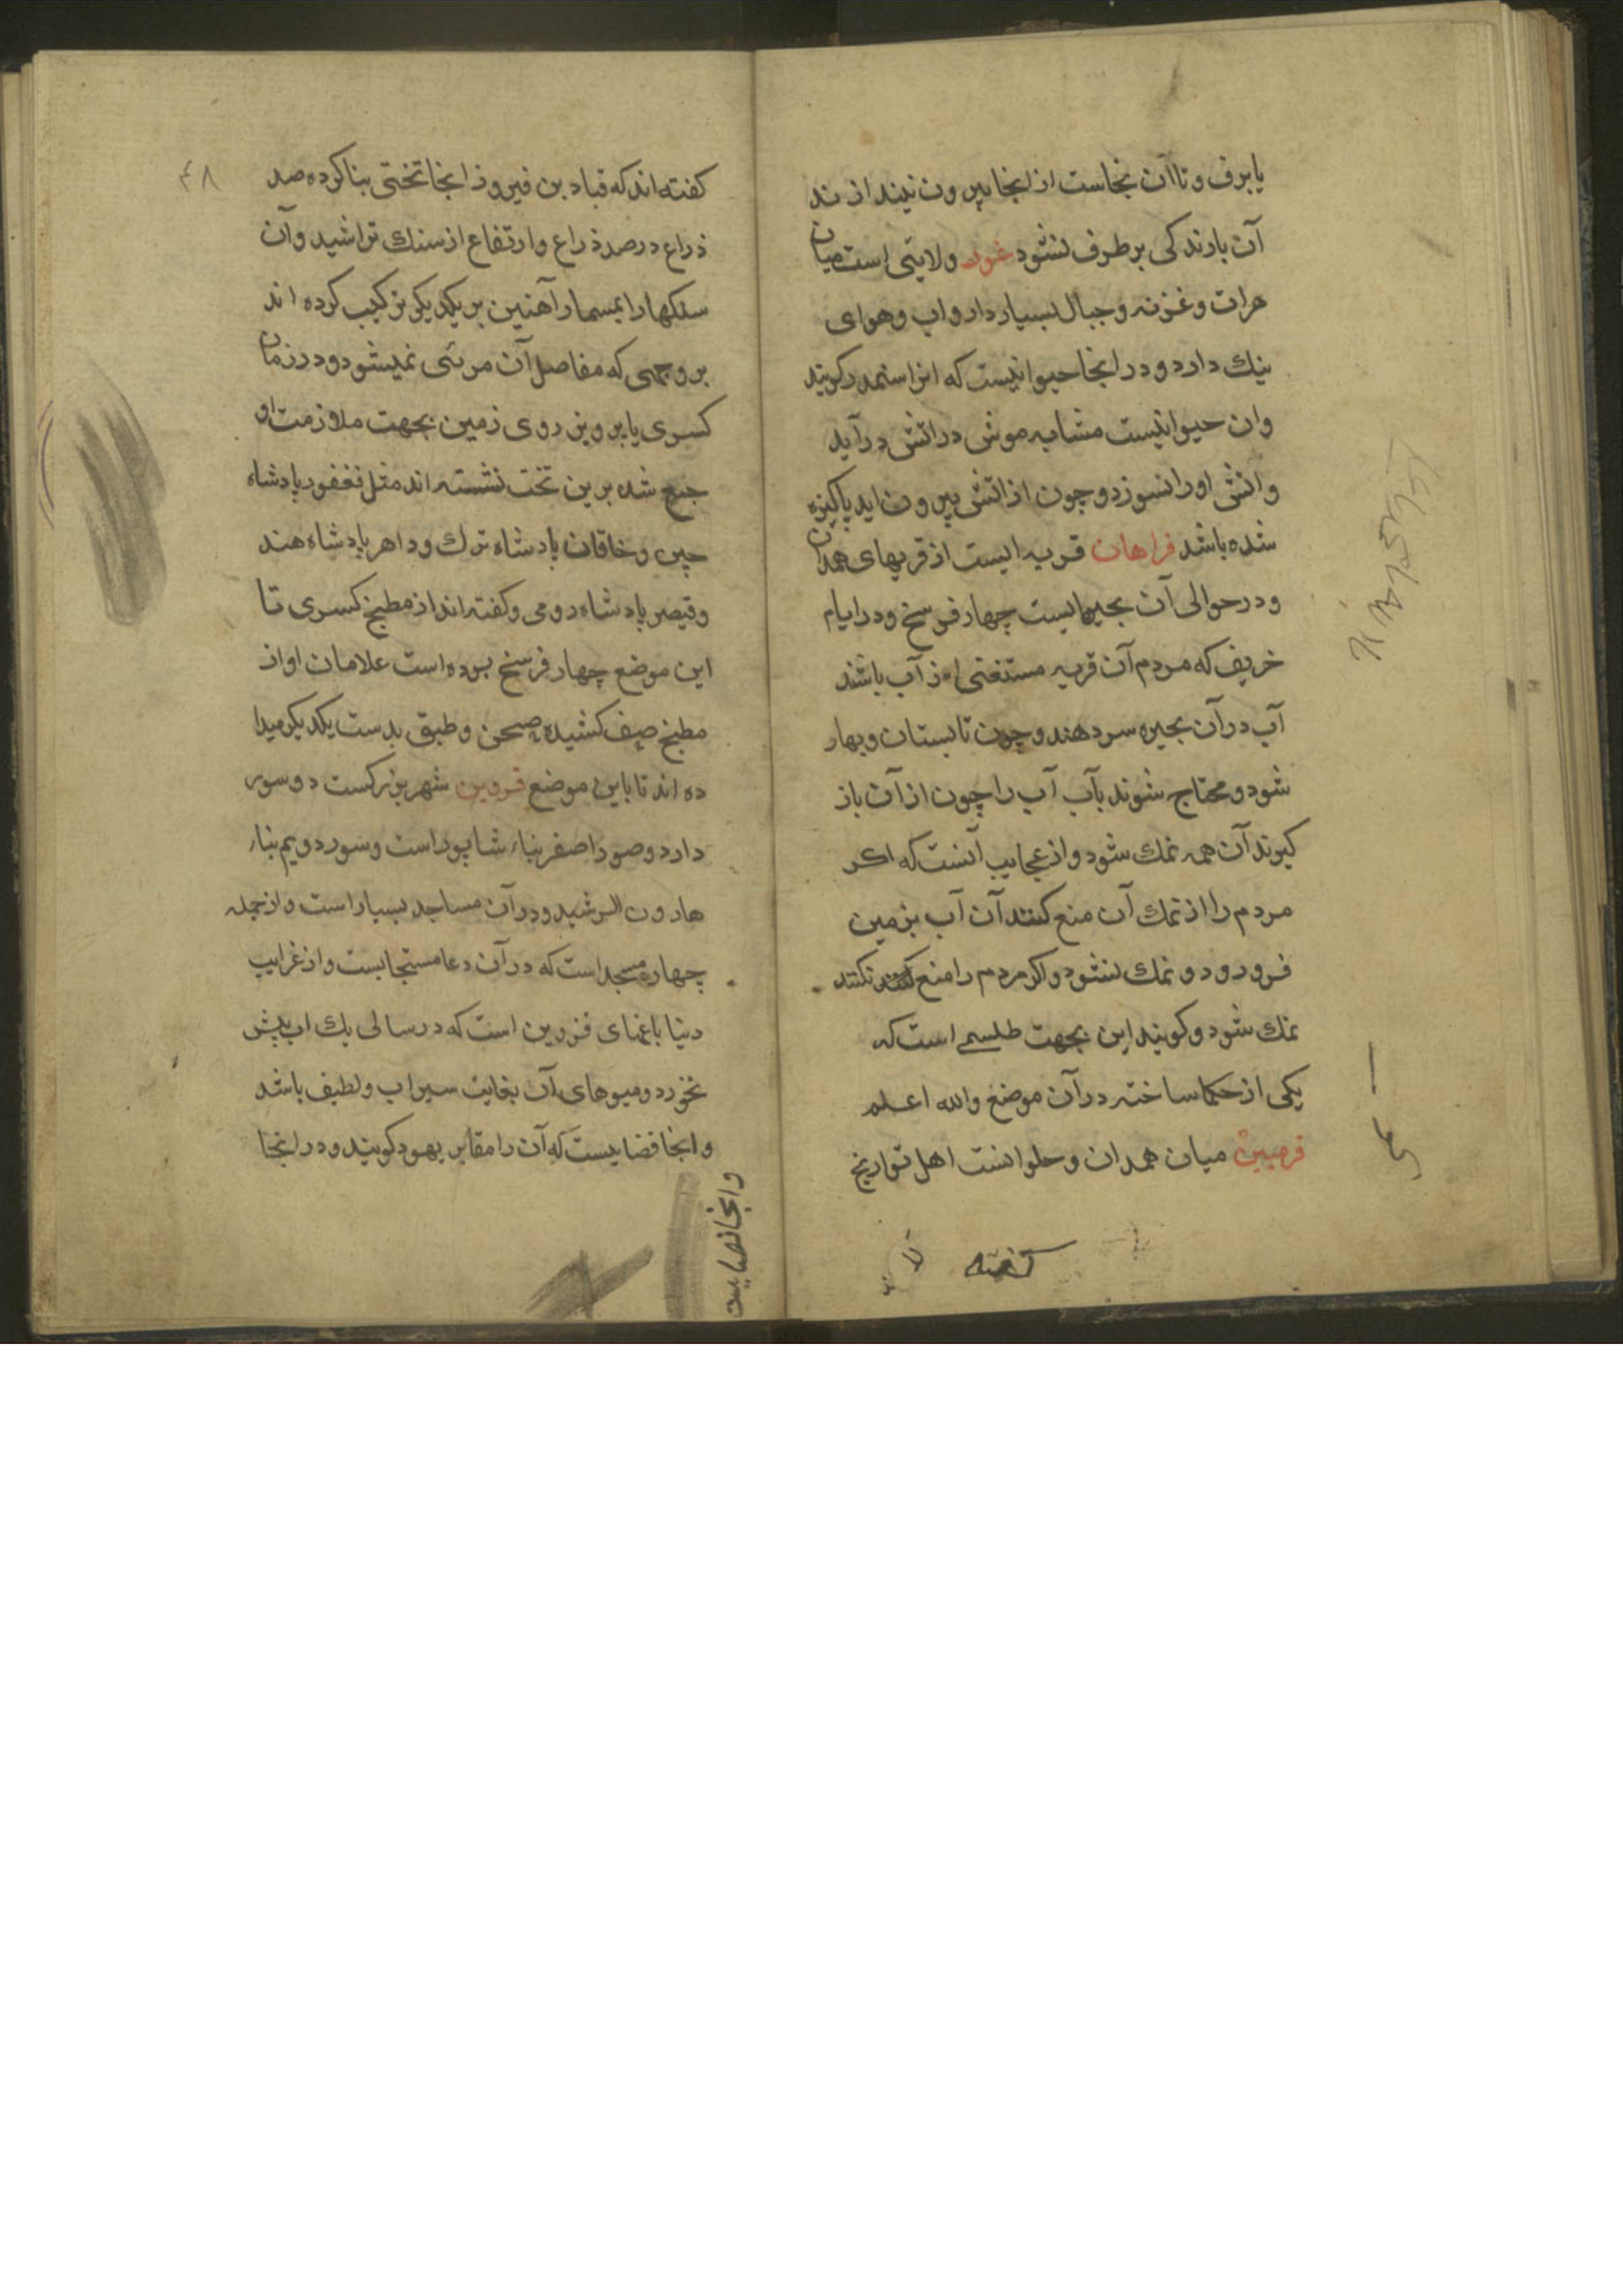 یا برف و تا آن نجاست از انجا بیرون نیندازند
آن بارندکی برطرف نشود غور ولایتی است میان
هرات و غزنه و جبال بسیار دارد و اب و هوای
نیك دارد و در انجا حیوانیست که انرا سمندر کویند
و ان حیوانیست مشابه موش در اتش درآید
و اتش اورا نسوزد و چون از اتش بیرون اید پاکیزه
شده باشد فراهان قریه ایست از قریهای همدان
و در حوالی آن بحیره ایست چهار فرسخ و در ایام
خریف که مردم آن قریه مستغنی از آب باشند
آب در آن بحیره سر دهند و چون تابستان و بهار
شود و محتاج شوند بآب آب را چون از آن باز
کیرند آن همه نمك شود و از عجایب آنست که اکر
مردم را از نمك آن منع کنند آن آب بزمین
فرو رود و نمك نشود و اکر مردم را منع نکنند
نمك شود و کویند این بجهت طلسمی است که
یکی از حکما ساخته در آن موضع والله اعلم
قرمیین میان همدان و حلوانست اهل تواریخ
کفته
۴۸
کفته اند که قباد بن فیروز انجا تختی بنا کرده صد
ذراع در صد ذراع و ارتفاع از سنك تراشید و آن
سنکها را بمسمار آهنین بر یکدیکر ترکیب کرده اند
بر وجهی که مفاصل آن مرئی نمیشود و در زمان
کسری یا پرویز روی زمین بجهت ملازمت او
جمع شده برین تخت نشسته اند مثل فغفور پادشاه
چین و خاقان پادشاه ترك و داهر پادشاه هند
و قیصر پادشاه رومی و کفته اند از مطبخ کسری تا
این موضع چهار فرسخ بوده است غلامان او از
مطبخ صف کشیده صحن و طبق بدست یکدیکر میدا
ده اند تا باین موضع قزوین شهر بزرکست دو سور
دارد و صور اصغر بناء شاپور است و سور دویم بناء
هارون الرشید و در آن مساجد بسیار است و از جمله
چهار مسجد است که در آن دعا مستجابست و از غرایب
دنیا باغهای قزوین است که در سالی یك اب بیش
نخورد و میوهای آن بغایت سیراب و لطیف باشد
و انجا فضاییست که آن را مقابر یهود کویند و در انجا
و انجا فضاییست